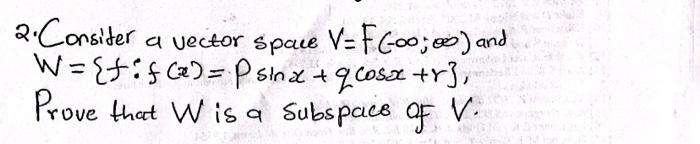 2. Consider a vector space V=F(-∞;∞) and
W={f:f(x)=Psinx+qcosx+r},
Prove that W is a subspace of V.